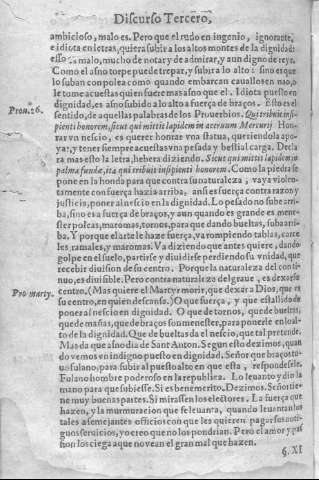 Discurso Tercero,
ambicioso, malo es. Pero que el rudo en ingenio, ignorante,
e idiota en letras, quiera subir a los altos montes de la dignidad:
esso es malo, mucho de notar y de admirar, y aun digno de reyr.
Como el asno torpe puede trepar, y subir a lo alto: sino es que
lo suban con polea como quando embarcan cauallos en nao,
le tome acuestas quien fuere mas asno que el. Idiota puesto en
dignidad, es asno subido alo alto a fuerça de braços. Esto es el
Prou. 26.
sentido, de aquellas palabras de los Prouerbios. Qui tribuit insi-
pienti honorem, sicut qui mittit lapidem in aceruum Mercurij. Hon-
rar vn necio, es querer honrar vna statua, queriendola apo-
yar, y tener siempre acuestas vna pesada y bestial carga. Decla
ra mas esto la letra, hebera diziendo. Sicut qui mittit lapidem in
palma fundæ, ita qui tribuit insipienti honorem. Como la piedra se
pone en la hondo para que contra su naturaleza, vaya violen-
tamente con fuerça hazia arriba, ansi es fuerça contra razon y
justicia, poner al necio en la dignidad. Lo pesado no sube arri-
ba, sino es a fuerça de braços, y aun quando es grande es mene-
ster poleas, maromas, tornos, para que dando bueltas, suba arri-
ba. Y porque el arte le haze fuerça, va rompiendo tablas, carte
les, ramales, y maromas. Va diziendo que antes quiere, dando
golpe en el suelo, partirse y diuidirse perdiendo su vnidad, que
recebir diuision de su centro. Porque la naturaleza del conti-
nuo, es diuisible. Pero contra naturaleza del graue, es dexar su
Pro marty.
centro, (Mas quiere el Martyr morir, que dexar a Dios, que es
su centro, en quien descansa.) O que fuerça, y que estallido de
poner al necio en dignidad. O que de tornos, que de bueltas,
que de mañas, que de braços son menester, para ponerle en lo al-
to de la dignidad. Que de bueltas da el necio, que tal pretende.
Mas da que asno dia de Sant Anton. Segun esto dezimos, quan
do vemos vn indigno puesto en dignidad. Señor que braços tu-
uo fulano, para subir al puesto alto en que esta, respondese le.
Fulano hombre poderoso en la republica. Lo leuanto y dio la
mano para que subiesse. Si es benemerito. Dezimos. Señor tie-
ne muy buenas partes. Si mirassen los electores. La fuerça que
hazen, y la murmuracion que se leuanta, quando leuantan los
tales a semejantes officios con que les quieren pagar sus anti-
guos seruicios, yo creo que no los pondrian. Pero el amor y pas
sion los ciega aque no vean el gran mal que hazen.
§. XI